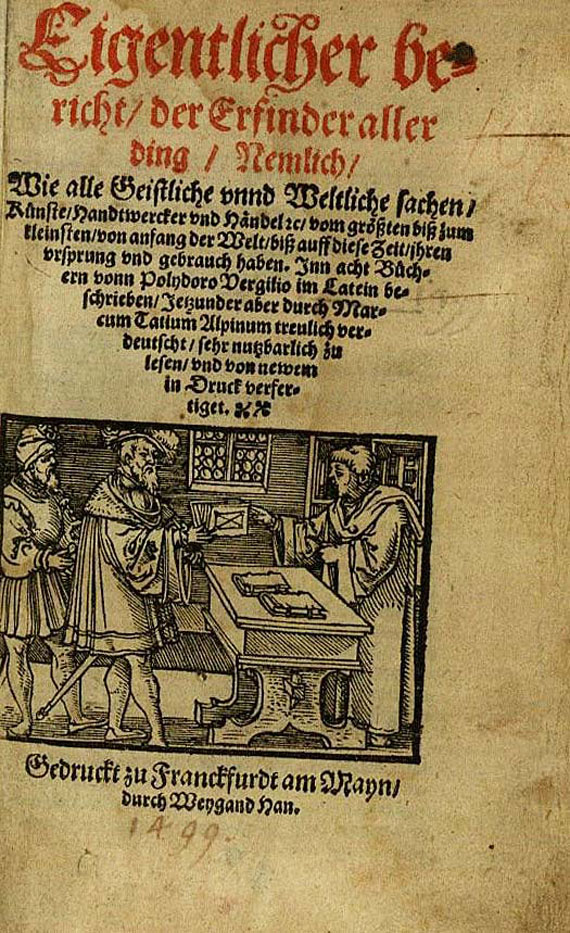 Eigentlicher be-
richt/ der Erfinder aller
ding / Nemlich/
Wie alle Geistliche vnnd Weltliche sachen/
Künste/Handtwercker vnd Händel ꝛc/ vom größten biß zum
kleinsten/von anfang der Welt/biß auff diese Zeit/jhren
vrsprung vnd gebrauch haben. Inn acht Büch-
ern vonn Polydoro Vergilio im Latein be-
schrieben/ Jetzunder aber durch Mar-
cum Tatium Alpinum treulich ver-
deutscht/ sehr nutzbarlich zu
lesen/ vnd von newem
in Druck verfer-
tiget.
Gedruckt zu Franckfurdt am Mayn/
durch Weygand Han.
1499.